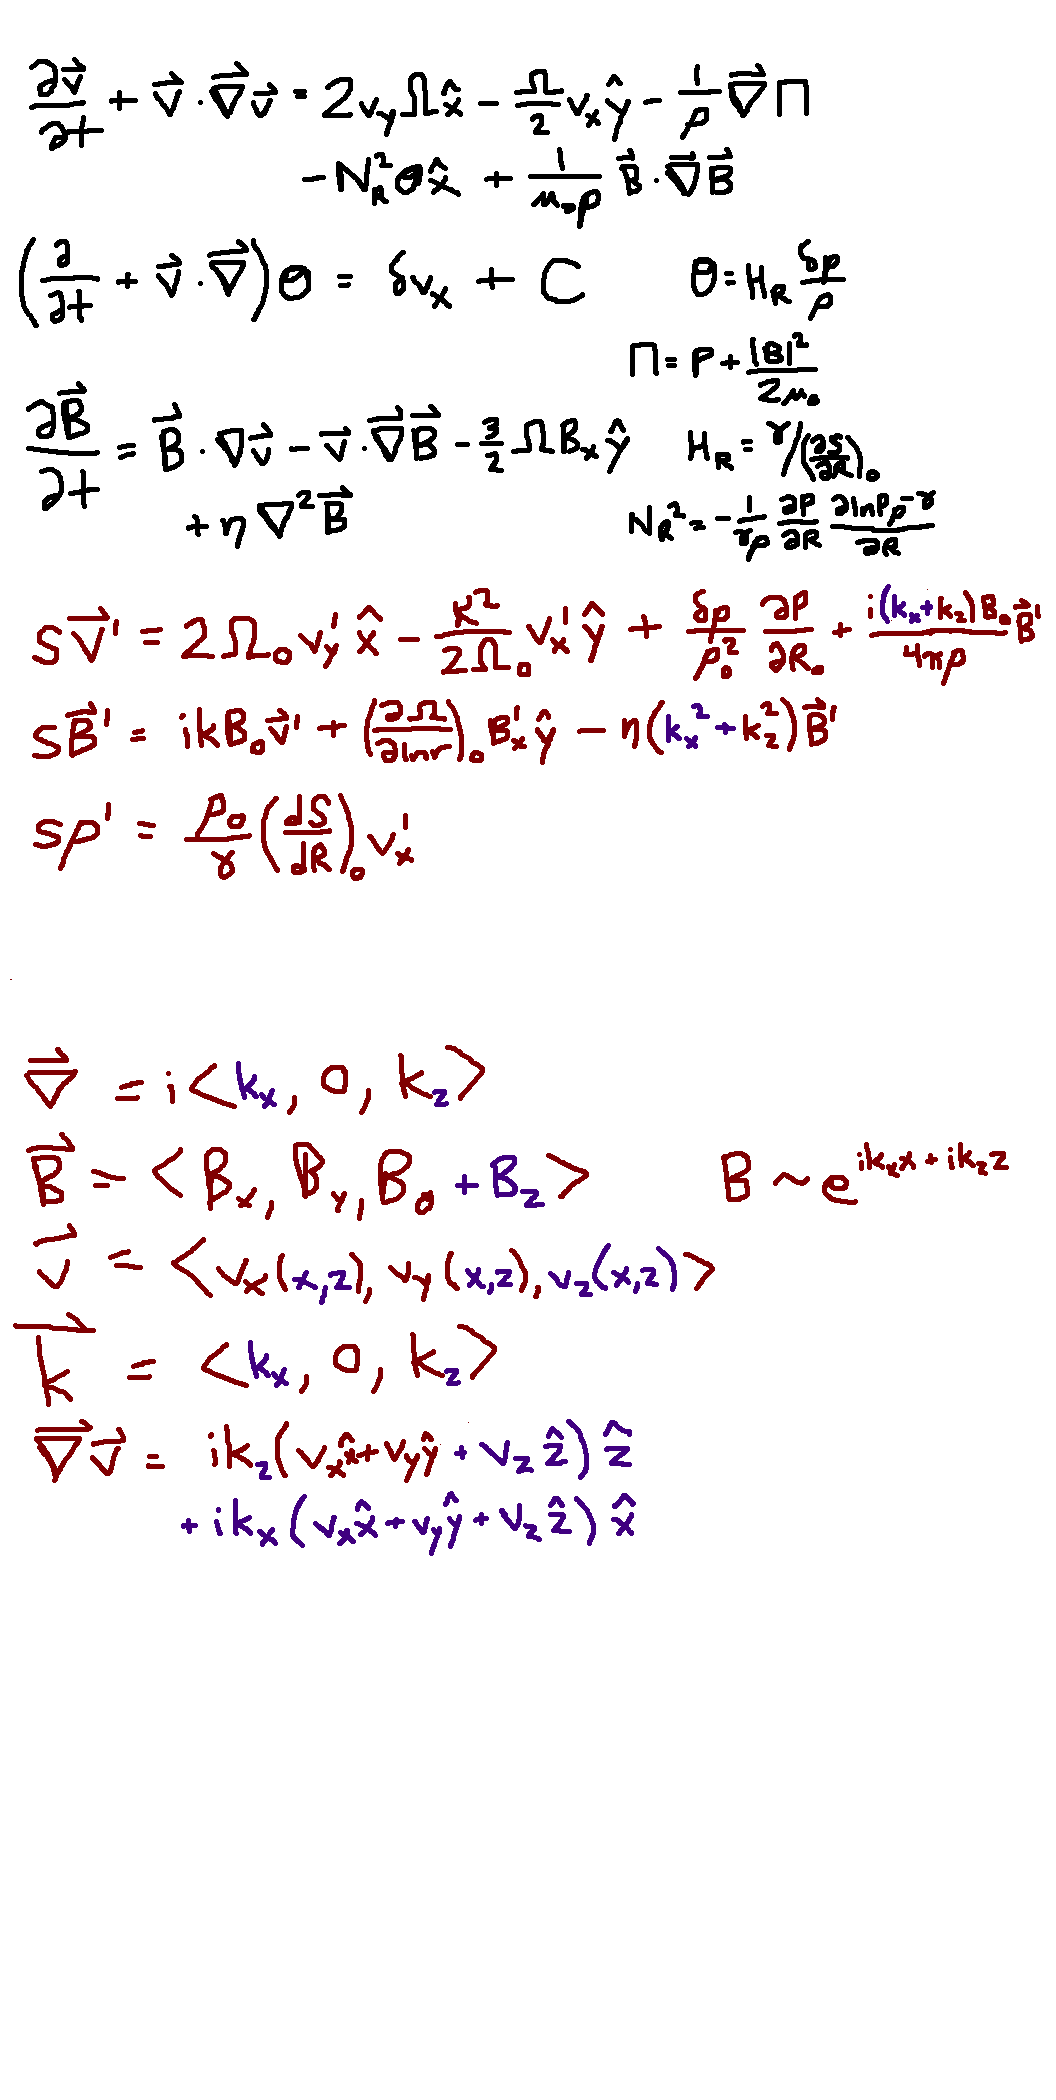 ∂v⃗/∂t + v⃗ · ∇⃗v⃗ = 2v_yΩx̂ − Ω/2 v_xŷ − 1/ρ ∇⃗Π
− N_R²θx̂ + 1/(μ₀ρ) B⃗ · ∇⃗B⃗
(∂/∂t + v⃗ · ∇⃗)θ = δv_x + C    θ = H_R δρ/ρ
Π = P + |B|²/(2μ₀)
∂B⃗/∂t = B⃗ · ∇v⃗ − v⃗ · ∇⃗B⃗ − 3/2 ΩB_xŷ    H_R = γ/(∂S/∂R)₀
+ η∇²B⃗    N_R² = − 1/(γρ) ∂P/∂R ∂lnPρ^(−γ)/∂R
sv⃗' = 2Ω₀v_y'x̂ − κ²/(2Ω₀) v_x'ŷ + δρ/ρ₀² ∂P/∂R₀ + i(k_x+k_z)B₀/(4πρ) B⃗'
sB⃗' = ikB₀v⃗' + (∂Ω/∂lnr)₀ B_x'ŷ − η(k_x²+k_z²)B⃗'
sρ' = ρ₀/γ (dS/dR)₀ v_x'
∇⃗ = i<k_x, 0, k_z>
B⃗ = <B_x, B_y, B₀ + B_z>    B ~ e^(ik_xx + ik_zz)
v⃗ = <v_x(x,z), v_y(x,z), v_z(x,z)>
k⃗ = <k_x, 0, k_z>
∇⃗v⃗ = ik_z(v_xx̂ + v_yŷ + v_zẑ)ẑ
+ ik_x(v_xx̂ + v_yŷ + v_zẑ)x̂